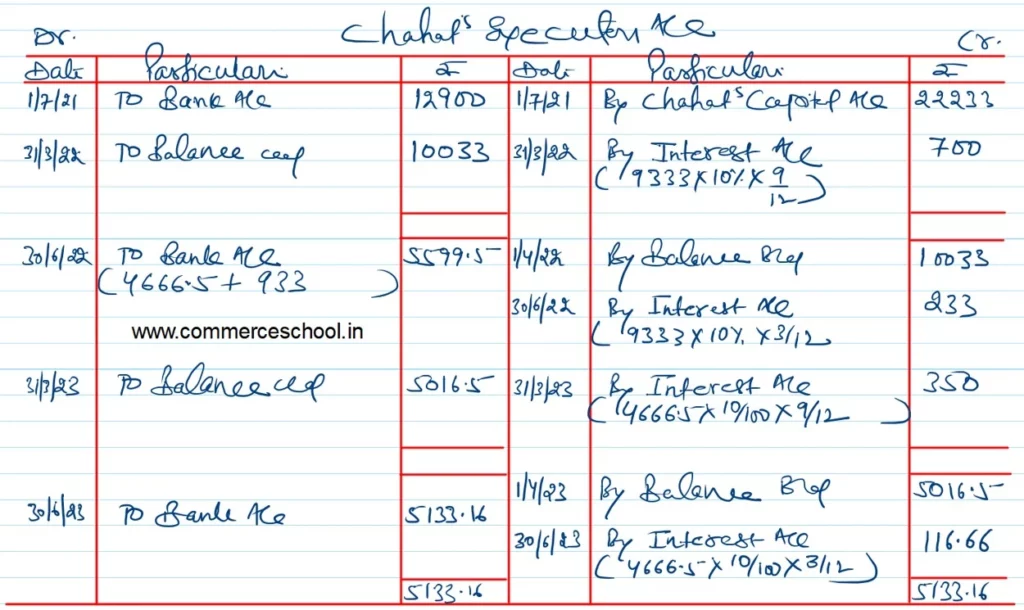 Chahat's Executors A/c
Dr. Cr.
Date Particulars ₹ Date Particulars ₹
1/7/21 To Bank A/c 12900 1/7/21 By Chahat's Capital A/c 22233
31/3/22 To Balance c/d 10033 31/3/22 By Interest A/c 700
(9333 X 10% X 9/12)
30/6/22 To Bank A/c 5599.5 1/4/22 By Balance B/d 10033
(4666.5 + 933 )
30/6/22 By Interest A/c 233
(9333 X 10% X 3/12
www.commerceschool.in
31/3/23 To Balance c/d 5016.5 31/3/23 By Interest A/c 350
(4666.5 X 10/100 X 9/12 )
1/4/23 By Balance B/d 5016.5
30/6/23 To Bank A/c 5133.16
30/6/23 By Interest A/c 116.66
(4666.5 X 10/100 X 3/12)
5133.16 5133.16